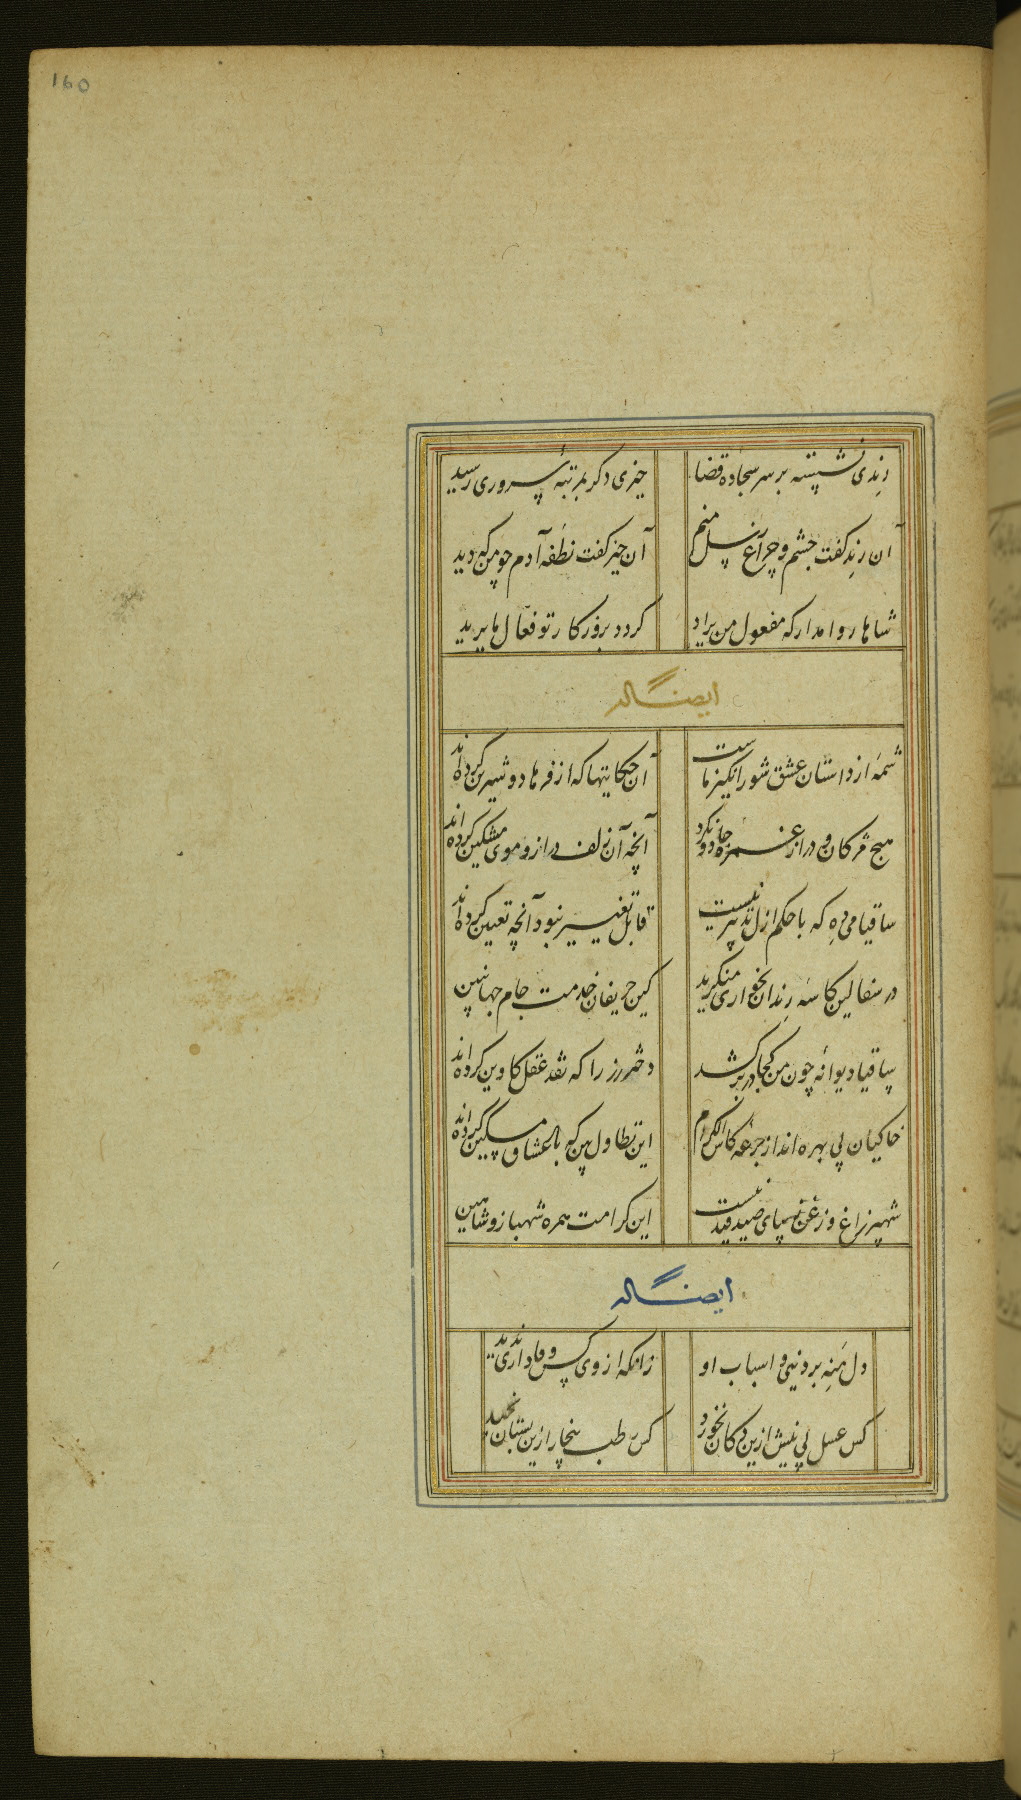 160
رندی نشسته بر سر سجاده قضا
چیزی دکر بمرتبهٔ سروری رسید
آن رند کفت چشم و چراغ پسل منم
آن حیز کفت نطفه آدم چو من که دید
شاها روا مدار که مفعول من یراد
کردد بروزکار تو فعّال ما یرید
ایضاله
شمهٔ از داستان عشق شورانکیز ماست
آن حکایتها که از فرهاد و شیرین کرده‌اند
هیچ مژکان دراز و غمزه جادو نکرد
آنچه آن زلف دراز و موی مشکین کرده‌اند
ساقیا می ده که با حکم ازل تدبیر نیست
قابل تغییر نبود آنچه تعیین کرده‌اند
در سفالین کاسه رندان بخواری منکرید
کین حریفان خدمت جام جهانبین
ساقیا دیوانهٔ چون من کجا در بر کشد
دختر رز را که نقد عقل کاوین کرده‌اند
خاکیان بی بهره‌اند از جرعه کاس الکرام
این تطاول بین که با عشاق مسکین کرده‌اند
شهپر زاغ و زغن زیبای صید و قید نیست
این کرامت همره شهباز و شاهین
ایضاله
دل منه بر دنیی و اسباب او
زانکه از وی کس وفاداری ندید
کس عسل بی نیش ازین دکان نخورد
کس رطب بیخار ازین بستان نچید